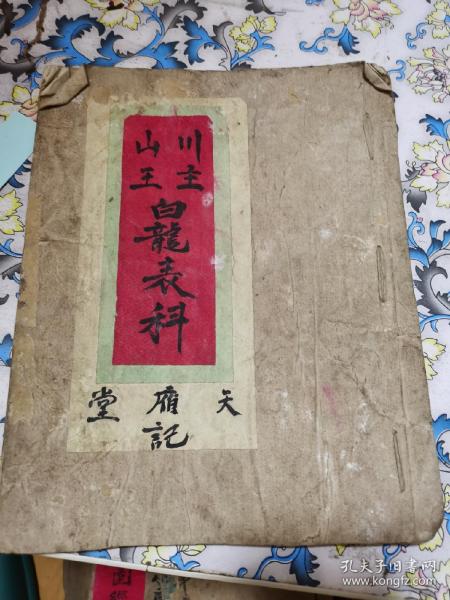 川主
山王
白龍表科
天
堂
記
孔夫子旧书网
www.kongfz.com